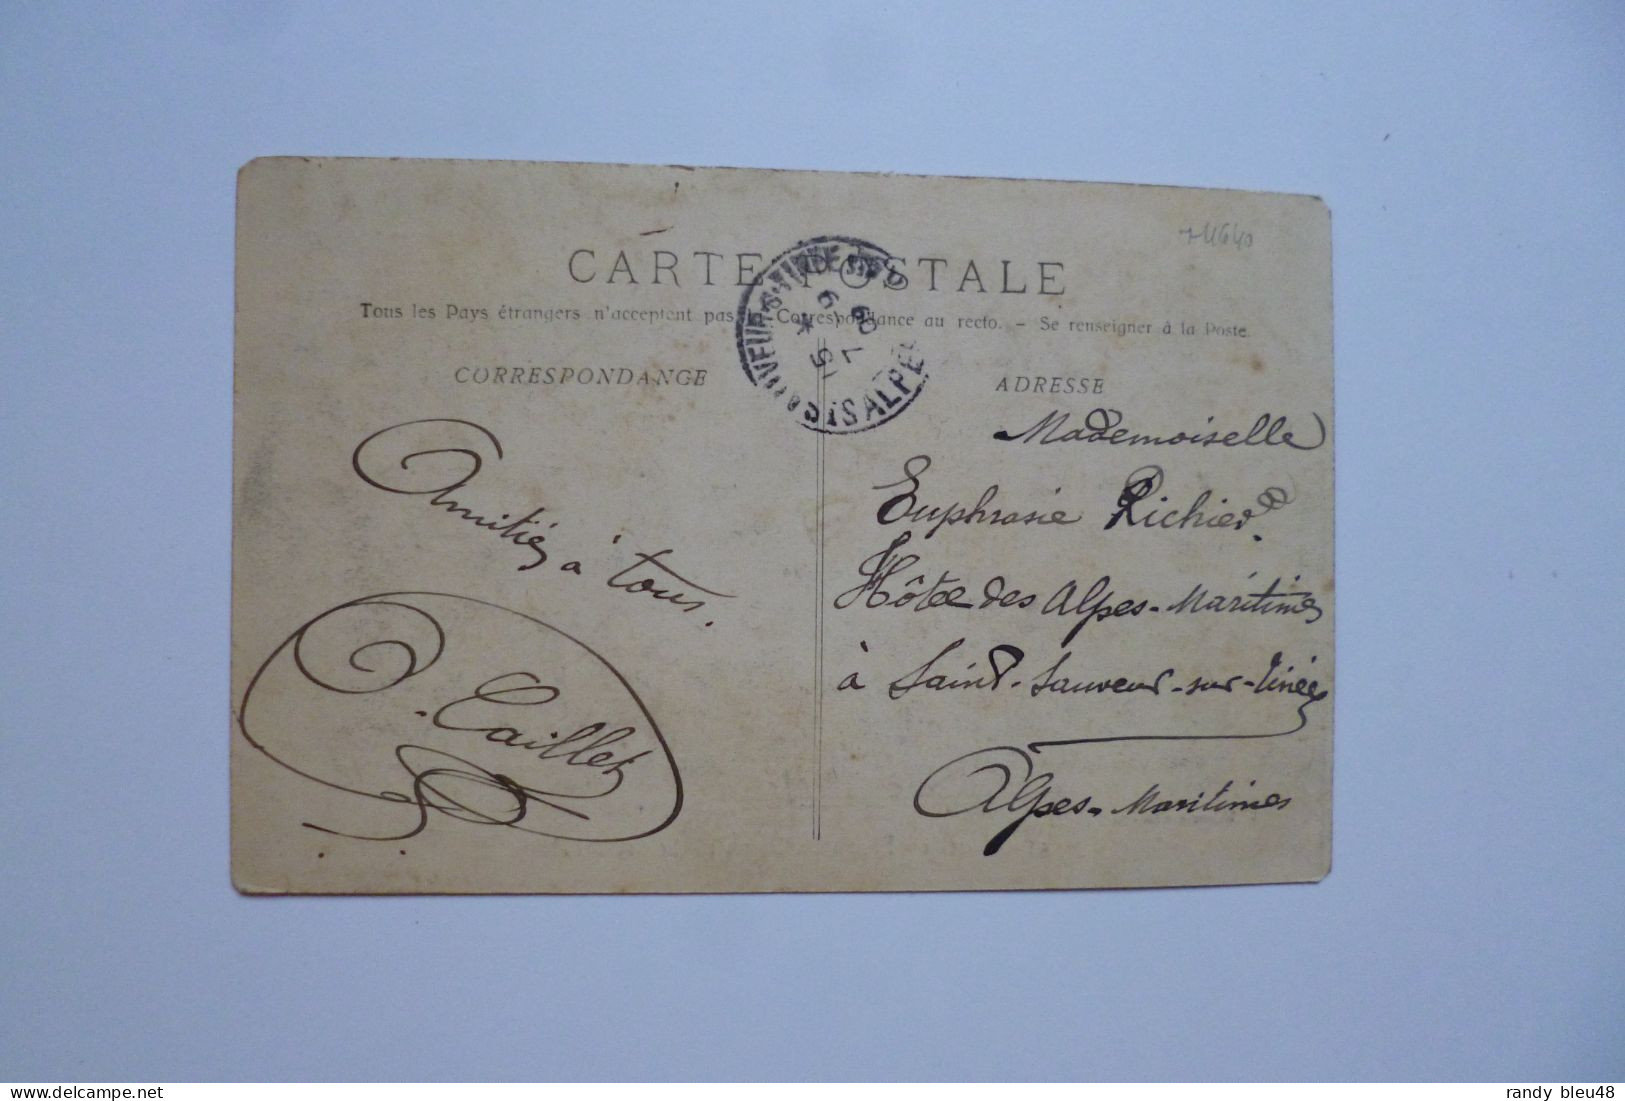 CARTE POSTALE
Tous les Pays étrangers n'acceptent pas la Correspondance au recto. - Se renseigner à la Poste.
CORRESPONDANCE
Amitiés à tous.
Caillet
ADRESSE
Mademoiselle
Euphrasie Richier
Hôtel des Alpes-Maritimes
à Saint-Sauveur-sur-Tinée
Alpes-Maritimes
randy bleu48